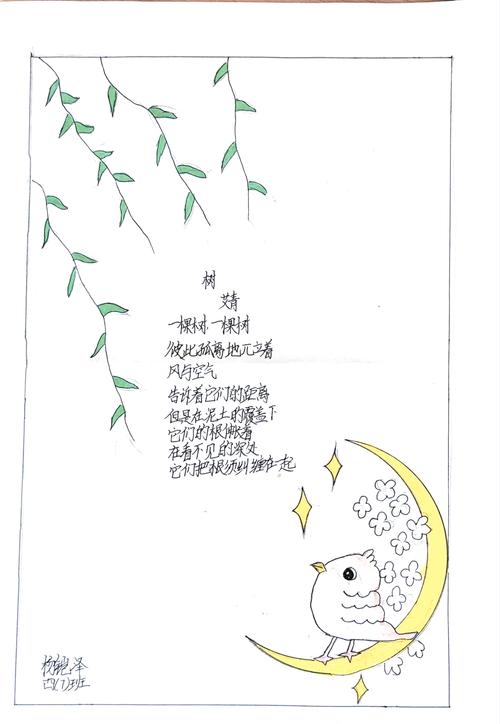 树
艾青
一棵树,一棵树
彼此孤离地兀立着
风与空气
告诉着它们的距离
但是在泥土的覆盖下
它们的根伸长着
在看不见的深处
它们把根须纠缠在一起
四(7)班